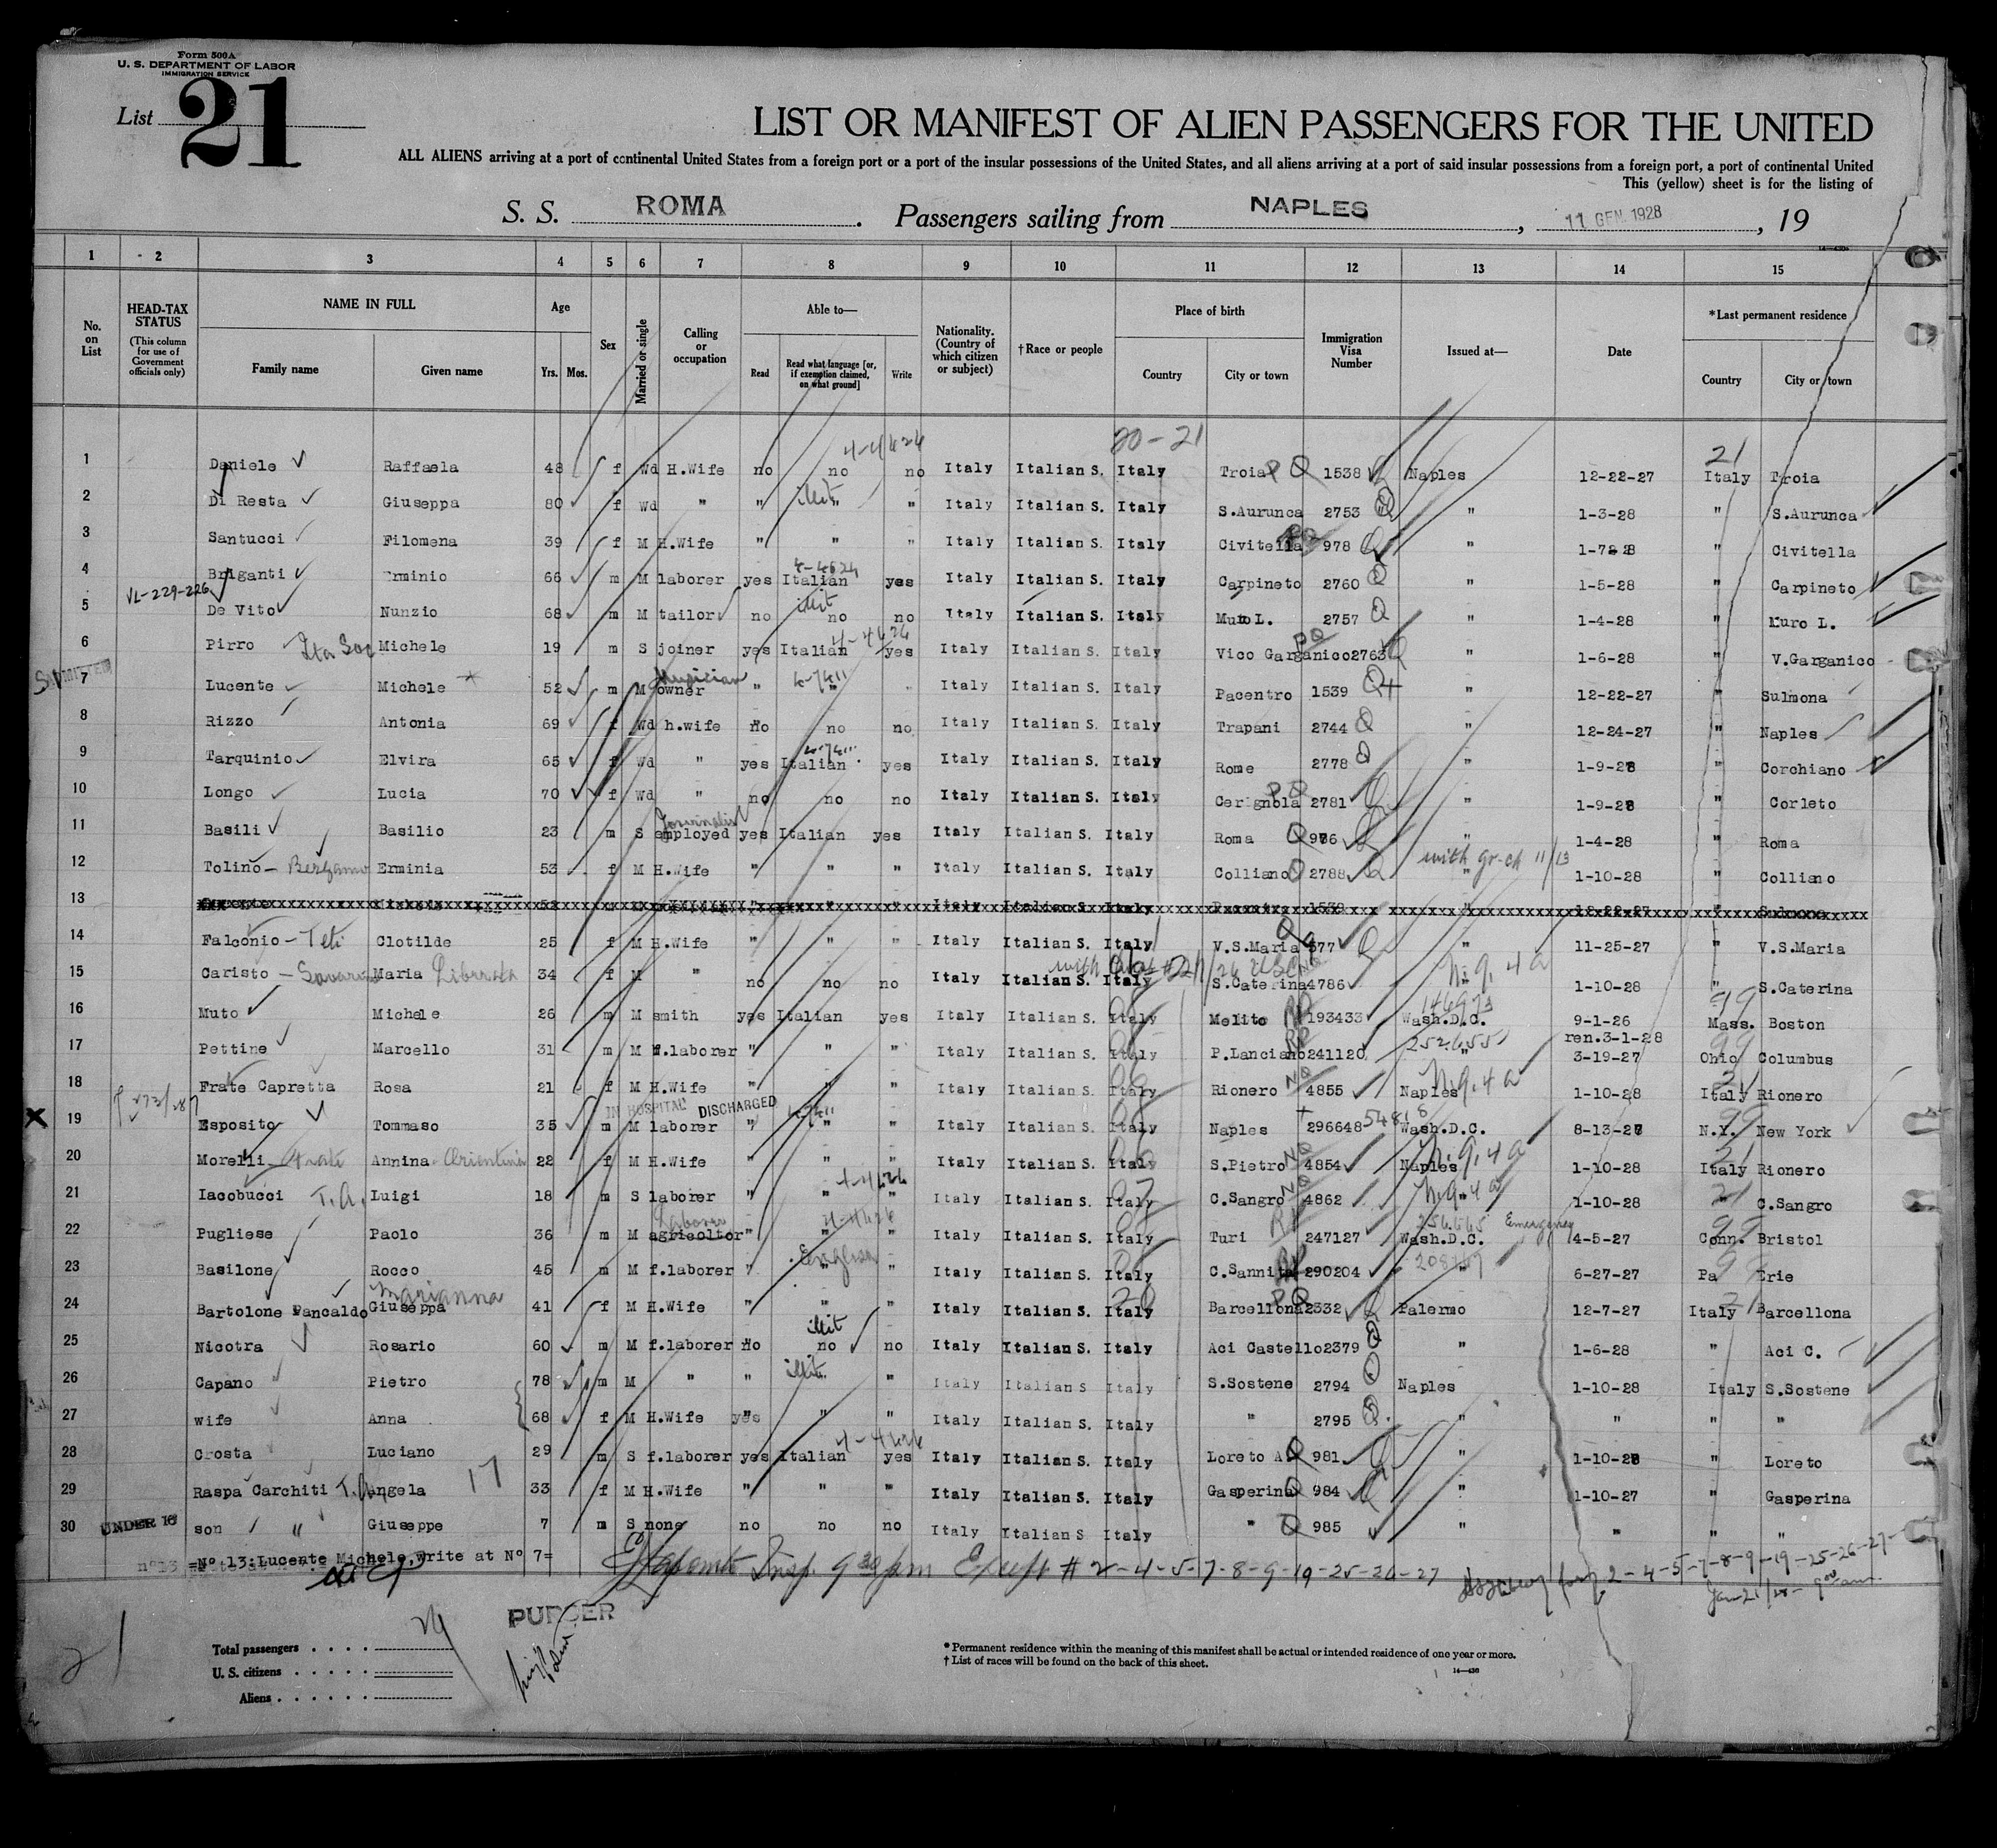 Form 500A
U. S. DEPARTMENT OF LABOR
IMMIGRATION SERVICE
List 21
LIST OR MANIFEST OF ALIEN PASSENGERS FOR THE UNITED
ALL ALIENS arriving at a port of continental United States from a foreign port or a port of the insular possessions of the United States, and all aliens arriving at a port of said insular possessions from a foreign port, a port of continental United
This (yellow) sheet is for the listing of
S. S. ROMA. Passengers sailing from NAPLES, 11 GEN. 1928, 19
1 2 3 4 5 6 7 8 9 10 11 12 13 14 15
No. on List HEAD-TAX STATUS (This column for use of Government officials only) NAME IN FULL Family name Given name Age Yrs. Mos. Sex Married or single Calling or occupation Able to— Read Read what language [or, if exemption claimed, on what ground] Write Nationality. (Country of which citizen or subject) †Race or people Place of birth Country City or town Immigration Visa Number Issued at— Date *Last permanent residence Country City or town
20-21
1 Daniele Raffaela 48 f Wd H.Wife no no no Italy Italian S. Italy Troia PQ 1538 Naples 12-22-27 21 Italy Troia
2 Di Resta Giuseppa 80 f Wd " " illit " " Italy Italian S. Italy S.Aurunca 2753 Q " 1-3-28 " S.Aurunca
3 Santucci Filomena 39 f M H.Wife " " " Italy Italian S. Italy Civitella 978 " 1-7-28 " Civitella
4 Briganti Erminio 66 m M laborer yes Italian yes Italy Italian S. Italy Carpineto 2760 Q " 1-5-28 " Carpineto
VL-229-226
5 De Vito Nunzio 68 m M tailor no illit no no Italy Italian S. Italy Muro L. 2757 Q " 1-4-28 " Muro L.
6 Pirro Michele 19 m S joiner yes Italian yes Italy Italian S. Italy Vico Garganico 2763 " 1-6-28 " V.Garganico
7 Lucente Michele 52 m M owner " " " Italy Italian S. Italy Pacentro 1539 " 12-22-27 " Sulmona
8 Rizzo Antonia 69 f Wd h.wife no no no Italy Italian S. Italy Trapani 2744 Q " 12-24-27 " Naples
9 Tarquinio Elvira 65 f Wd " yes Italian yes Italy Italian S. Italy Rome 2778 Q " 1-9-28 " Corchiano
10 Longo Lucia 70 f Wd " no no no Italy Italian S. Italy Cerignola PQ 2781 " 1-9-28 " Corleto
11 Basili Basilio 23 m S employed Journalist yes Italian yes Italy Italian S. Italy Roma Q 976 " 1-4-28 " Roma
12 Tolino - Bergamo Erminia 53 f M H.Wife " " " Italy Italian S. Italy Colliano 2788 with gr-ch 11/13 " 1-10-28 " Colliano
13
14 Falconio - Teti Clotilde 25 f M H.Wife " " " Italy Italian S. Italy V.S.Maria 577 " 11-25-27 " V.S.Maria
15 Caristo - Maria Liberata 34 f M " no no no Italy Italian S. Italy S.Caterina 4786 " 1-10-28 " S.Caterina
16 Muto Michele 26 m M smith yes Italian yes Italy Italian S. Italy Melito 193433 Wash.D.C. 9-1-26 Mass. Boston
ren.3-1-28
17 Pettine Marcello 31 m M f.laborer " " " Italy Italian S. Italy P.Lanciano 241120 " 3-19-27 Ohio Columbus
18 Frate Capretta Rosa 21 f M H.Wife " " " Italy Italian S. Italy Rionero NQ 4855 Naples 1-10-28 Italy Rionero
IN HOSPITAL DISCHARGED
19 Esposito Tommaso 35 m M laborer " " " Italy Italian S. Italy Naples 296648 Wash.D.C. 8-13-27 N.Y. New York
20 Morelli Annina 22 f M H.Wife " " " Italy Italian S. Italy S.Pietro NQ 4854 Naples 1-10-28 Italy Rionero
21 Iacobucci T.A. Luigi 18 m S laborer " " " Italy Italian S. Italy C.Sangro NQ 4862 " 1-10-28 " C.Sangro
22 Pugliese Paolo 36 m M agricoltor Laborer " " " Italy Italian S. Italy Turi 247127 Wash.D.C. Emergency 4-5-27 Conn. Bristol
23 Basilone Rocco 45 m M f.laborer " English " " Italy Italian S. Italy C.Sannita 290204 " 6-27-27 Pa Erie
24 Bartolone Pancaldo Giuseppa Marianna 41 f M H.Wife " " " Italy Italian S. Italy Barcellona PQ 2332 Palermo 12-7-27 Italy Barcellona
25 Nicotra Rosario 60 m M f.laborer no illit no no Italy Italian S. Italy Aci Castello 2379 " 1-6-28 " Aci C.
26 Capano Pietro 78 m M " " illit " Italy Italian S Italy S.Sostene 2794 Naples 1-10-28 Italy S.Sostene
27 wife Anna 68 f M H.Wife yes " " Italy Italian S. Italy " 2795 " " " "
28 Crosta Luciano 29 m S f.laborer yes Italian yes Italy Italian S. Italy Loreto A. 981 " 1-10-28 " Loreto
29 Raspa Carchiti T.A. Angela 17 33 f M H.Wife " " " Italy Italian S. Italy Gasperina 984 " 1-10-27 " Gasperina
30 UNDER 16 son " Giuseppe 7 m S none no no no Italy Italian S. Italy " 985 " " " "
=Nº 13:Lucente Michele,write at Nº 7=
Insp. 9 30 pm Except # 2-4-5-7-8-9-19-25-26-27
2-4-5-7-8-9-19-25-26-27-
Jan 21/28 - 9 00 am
PURSER
21
Total passengers
U. S. citizens
Aliens
* Permanent residence within the meaning of this manifest shall be actual or intended residence of one year or more.
† List of races will be found on the back of this sheet.
14—430